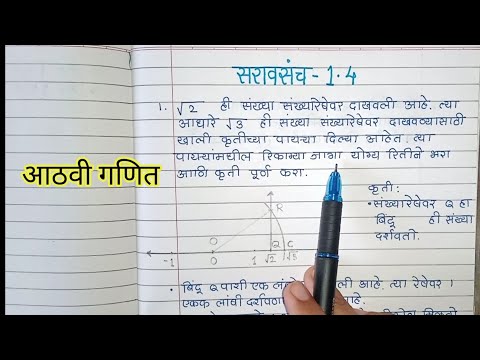 सरावसंच - 1.4
1. √2 ही संख्या संख्यारेषेवर दाखवली आहे. त्या
आधारे √3 ही संख्या संख्यारेषेवर दाखवण्यासाठी
खाली कृतीच्या पायऱ्या दिल्या आहेत. त्या
पायऱ्यांमधील रिकाम्या जागा योग्य रितीने भरा
आणि कृती पूर्ण करा.
आठवी गणित
कृती:
• संख्यारेषेवर Q हा
बिंदू ही संख्या
दर्शवतो.
R
O Q C
-1 0 1 √2 √3
• बिंदू Q पाशी एक लंब आहे. त्या रेषेवर 1
एकक लांबी आहे.